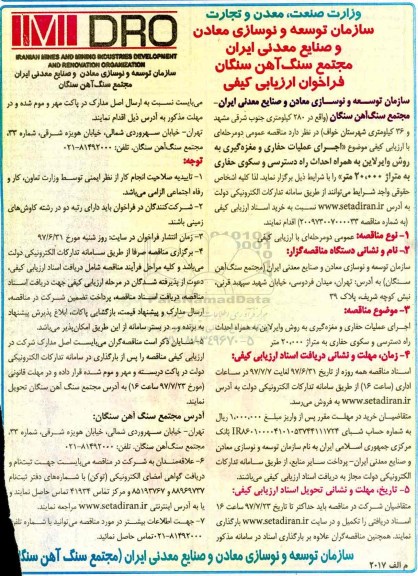 وزارت صنعت، معدن و تجارت
سازمان توسعه و نوسازی معادن
و صنایع معدنی ایران
مجتمع سنگ‌آهن سنگان
فراخوان ارزیابی کیفی
IMIDRO
IRANIAN MINES AND MINING INDUSTRIES DEVELOPMENT
AND RENOVATION ORGANIZATION
سازمان توسعه و نوسازی معادن و صنایع معدنی ایران
مجتمع سنگ‌آهن سنگان
سازمان توسعه و نوسازی معادن و صنایع معدنی ایران-
مجتمع سنگ‌آهن سنگان (واقع در ۲۸۰ کیلومتری جنوب شرقی مشهد
و ۳۶ کیلومتری شهرستان خواف) در نظر دارد مناقصه عمومی دومرحله‌ای
با ارزیابی کیفی موضوع «اجرای عملیات حفاری و مغزه‌گیری به
روش وایرلاین به همراه احداث راه دسترسی و سکوی حفاری
به متراژ ۲۰،۰۰۰ متر» را با شرایط ذیل برگزار نماید. لذا کلیه اشخاص
حقوقی واجد شرایط می‌توانند از طریق سامانه تدارکات الکترونیکی دولت
به آدرس www.setadiran.ir نسبت به خرید اسناد ارزیابی کیفی
(به شماره مناقصه ۲۰۰۹۷۳۰۷۰۰۰۰۳۳) اقدام نمایند.
۱- نوع مناقصه: عمومی دومرحله‌ای با ارزیابی کیفی
۲- نام و نشانی دستگاه مناقصه‌گزار:
سازمان توسعه و نوسازی معادن و صنایع معدنی ایران (مجتمع سنگ‌آهن
سنگان) به آدرس: تهران، میدان فردوسی، خیابان شهید سپهبد قرنی،
نبش کوچه شریف، پلاک ۳۹
۳- موضوع مناقصه:
اجرای عملیات حفاری و مغزه‌گیری به روش وایرلاین به همراه احداث
راه دسترسی و سکوی حفاری به متراژ ۲۰،۰۰۰ متر
۴- زمان، مهلت و نشانی دریافت اسناد ارزیابی کیفی:
اسناد مناقصه همه روزه از تاریخ ۹۷/۶/۳۱ لغایت ۹۷/۷/۷ در ساعات
اداری (ساعت ۱۶) از طریق سامانه تدارکات الکترونیکی دولت به آدرس
www.setadiran.ir به فروش می‌رسد.
متقاضیان خرید در مهلت مقرر پس از واریز مبلغ ۱،۰۰۰،۰۰۰ ریال
به شماره حساب شبای بانک
مرکزی جمهوری اسلامی ایران به نام سازمان توسعه و نوسازی معادن
و صنایع معدنی ایران- پرداخت منابع، از طریق سامانه تدارکات
الکترونیکی دولت مجاز به دریافت اسناد ارزیابی کیفی می‌باشند.
۵- تاریخ، مهلت و نشانی تحویل اسناد ارزیابی کیفی:
متقاضیان شرکت در مناقصه باید حداکثر تا تاریخ ۹۷/۷/۲۳ ساعت ۱۶
اسناد دریافتی را تکمیل و در سایت www.setadiran.ir بارگذاری
نمایند. همچنین مناقصه‌گران علاوه بر بارگذاری اسناد در سامانه مذکور
می‌بایست نسبت به ارسال اصل مدارک در پاکت مهر و موم شده و در
مهلت مذکور به آدرس ذیل اقدام نمایند.
تهران- خیابان سهروردی شمالی، خیابان هویزه شرقی، شماره ۳۳،
مجتمع سنگ‌آهن سنگان. تلفن: ۸۱۴۹۲۰۰۰-۰۲۱
توجه:
۱- تاییدیه صلاحیت انجام کار از نظر ایمنی توسط وزارت تعاون، کار و
رفاه اجتماعی الزامی می‌باشد.
۲- شرکت‌کنندگان در فراخوان باید دارای رتبه دو در رشته کاوش‌های
زمینی باشند.
۳- زمان انتشار فراخوان در سایت: روز شنبه مورخ ۹۷/۶/۳۱
۴- برگزاری مناقصه صرفا از طریق سامانه تدارکات الکترونیکی دولت
می‌باشد و کلیه مراحل فرآیند مناقصه شامل دریافت اسناد ارزیابی کیفی،
دعوت از پذیرفته شدگان در مرحله ارزیابی کیفی جهت دریافت اسناد
مناقصه، دریافت اسناد مناقصه، پرداخت تضمین شرکت در مناقصه،
ارسال مدارک و پیشنهاد قیمت، بازگشایی پاکات، ابلاغ پذیرش پیشنهاد
به برنده و... در بستر سامانه از این طریق امکان‌پذیر می‌باشد.
۵- شایان ذکر است مناقصه‌گران می‌بایست اصل مدارک شرکت در
ارزیابی کیفی مناقصه را پس از بارگذاری در سامانه تدارکات الکترونیکی
دولت در پاکت دربسته و مهر و موم شده قرار داده و در مهلت قانونی
(مورخ ۹۷/۷/۲۳ ساعت ۱۶) به آدرس مجتمع سنگ آهن سنگان تحویل
نمایند.
آدرس مجتمع سنگ آهن سنگان:
تهران- خیابان سهروردی شمالی، خیابان هویزه شرقی، شماره ۳۳،
مجتمع سنگ آهن سنگان، تلفن: ۸۱۴۹۲۰۰۰-۰۲۱
۶- علاقه‌مندان به شرکت در مناقصه می‌بایست جهت ثبت‌نام و
دریافت گواهی امضای الکترونیکی (توکن) با شماره‌های دفتر ثبت‌نام
۸۸۹۶۹۷۳۷ و ۸۵۱۹۳۷۶۷ و مرکز تماس ۴۱۹۳۴ تماس حاصل نمایند و
یا به آدرس اینترنتی www.setadiran.ir مراجعه نمایند.
۷- جهت اطلاعات بیشتر در مورد مناقصه می‌توانید با شماره تلفن
۸۱۴۹۲۰۰۰-۰۲۱ تماس حاصل نمایید.
سازمان توسعه و نوسازی معادن و صنایع معدنی ایران (مجتمع سنگ آهن سنگان)
م الف ۲۰۱۷